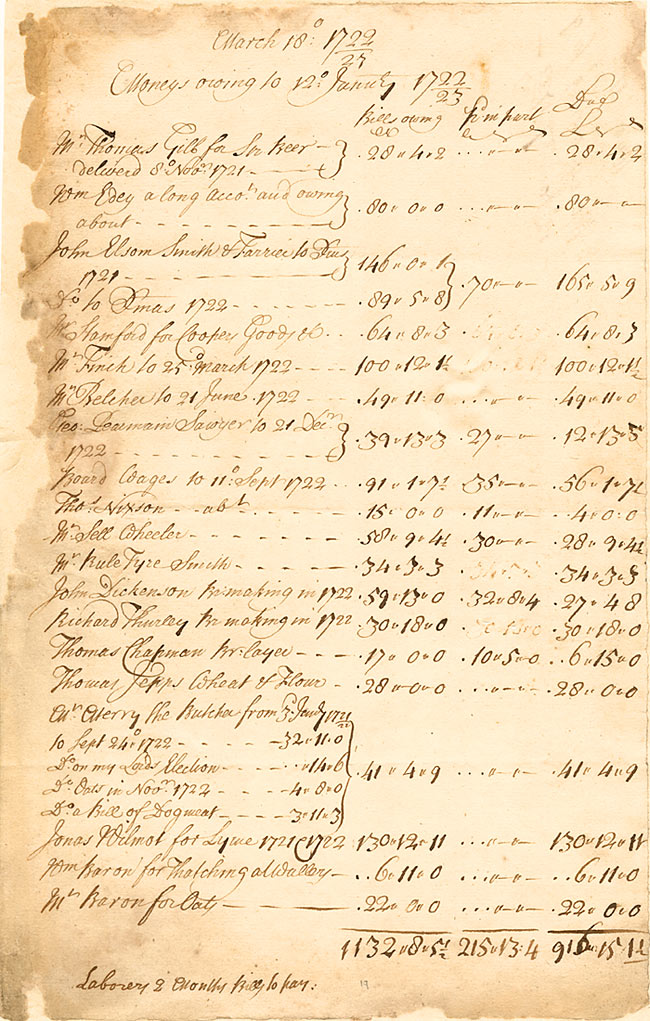 March 18º: 1722/23
Moneys owing to 12º Janu:ry 1722/23
Bills owing Pd in part Due
Mr Thomas Gill for Sm Beer - } .28 " 4 " 2 ... " - " - .28 " 4 " 2
deliverd 8º Nobr: 1721
Wm Edey a long Accot: and owing } .80 " 0 " 0 ... " - " - .80 " - " -
about - - - - - - -
John Elsom Smith & Farrier to Xmas } 146 " 0 " 1
1721 - - - - - - } .70 " - " - 165 " 5 " 9
Do to Xmas 1722 - - - - - - .89 " 5 " 8
Mr Hamford for Coopers Goods &c - - .64 " 8 " 3 .64 " 8 " 3
Mr Finch to 25º march 1722 - - - - 100 " 12 " 1½ 100 " 12 " 1½
Mr Belcher to 21 June 1722 - - - - .49 " 11 : 0 .49 " 11 " 0
Geo: Dearmain Sawyer to 21 Decr: } .39 " 13 " 3 .27 " - " - .12 " 13 " 3
1722 - - - - - - -
Board Wages to 11º Sept 1722 - - .91 " 1 " 7½ .35 " - " - .56 " 1 " 7½
Thos: Nixson - - abt: - - - - .15 " 0 " 0 .11 " - " - .4 " 0 : 0
Mr Sell Wheeler - - - - - - .58 " 9 " 4½ .30 " - " - .28 " 9 " 4½
Mr Rule Tyre Smith - - - - - .34 " 3 " 3 .34 " 3 " 3
John Dickenson Br: making in 1722 .59 " 13 " 0 .32 " 8 " 4 .27 " 4 8
Richard Thurley Br making in 1722 .30 " 18 " 0 .30 " 18 " 0
Thomas Chapman Br: layer - - - .17 " 0 " 0 .10 " 5 " 0 .6 " 15 " 0
Thomas Jepps Wheat & Flour - .28 " 0 " 0 ... " - " - .28 " 0 " 0
Mr Merry the Butcher from 3d Janry 1721/22
to Sept 24º 1722 - - - - - 32 " 11 " 0
Do on my Lords Election - - - .. " 14 " 6 } .41 " 4 " 9 ... " - " - .41 " 4 " 9
Do Oats in Novr: 1722 - - - - 4 " 8 " 0
Do a Bill of Dogmeat - - - 3 " 11 " 3
Jonas Wilmot for Lyme 1721 & 1722 130 " 12 " 11 ... " - " - 130 " 12 " 11
Wm Baron for Thatching at Wallers - - ..6 " 11 " 0 ... " - " - ..6 " 11 " 0
Mr Baron for Oats - - - .22 " 0 " 0 ... " - " - .22 " 0 " 0
1132 " 8 " 5½ 215 " 13 : 4 916 " 15 " 1½
Laborers 2 Months Bills to pay: